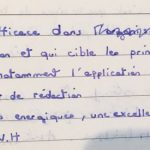 fficace dans
on et qui cible les prin
notamment l'application
de rédaction
s energiques, une excelle
V.H